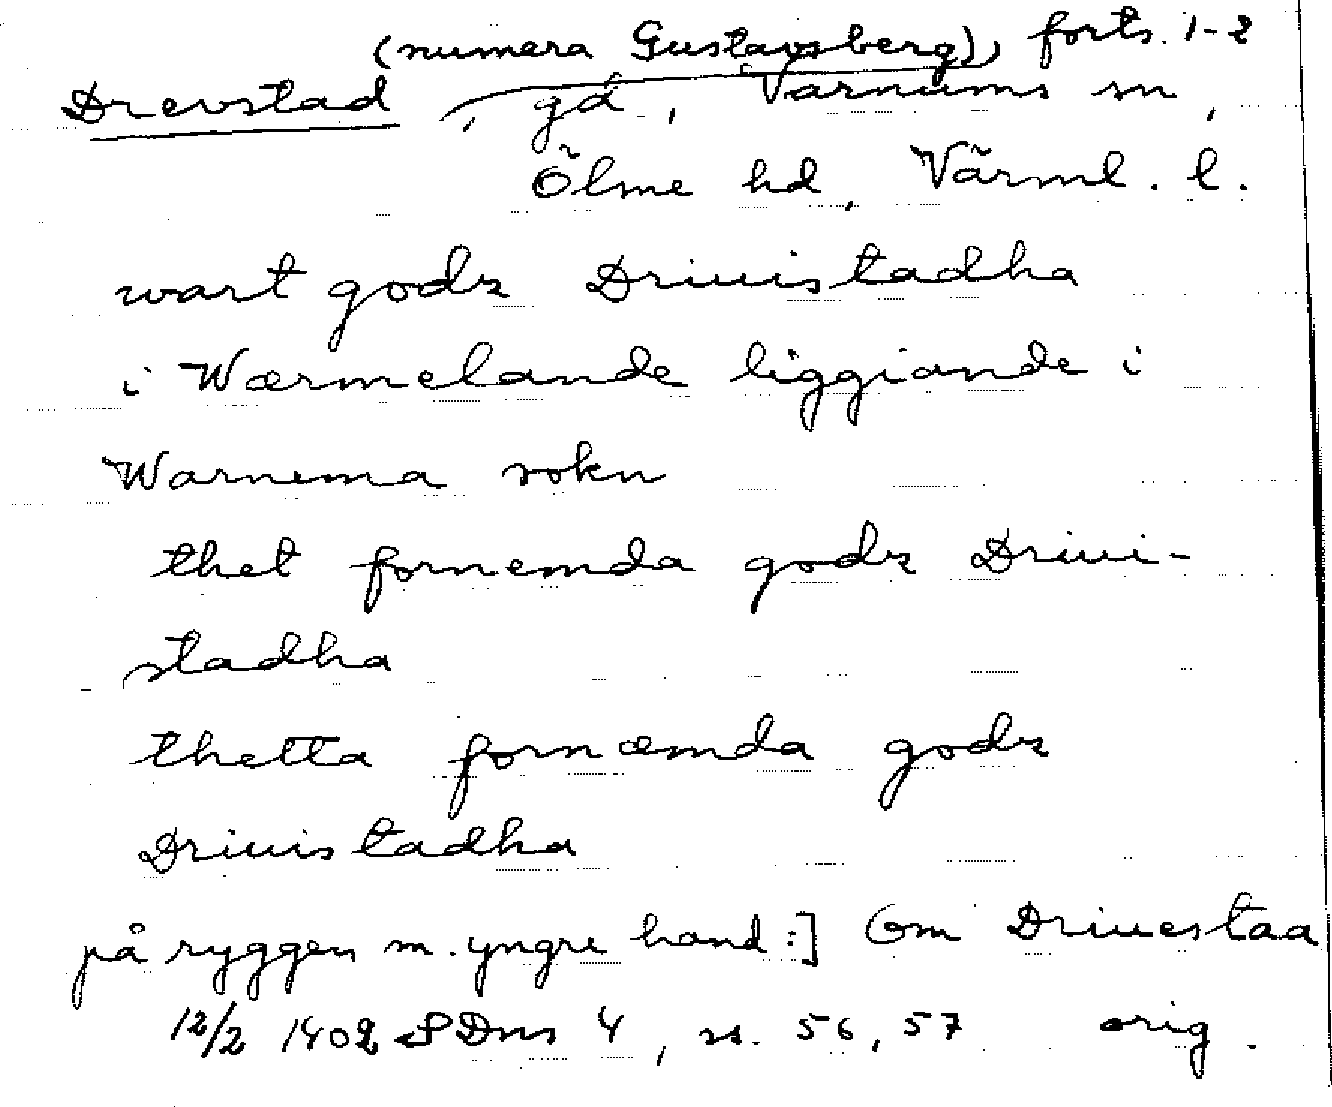 (numera Gustavsberg), forts. 1-2
Drevstad, gd, Varnums sn,
Ölme hd, Värml. l.
wart godz Driuistadha
i Wærmelande liggiande i
Warnema sokn
thet fornemda godz Driui-
stadha
thetta fornæmda godz
Driuistadha
på ryggen m. yngre hand:] Om Driuestaa
12/2 1402 SDns 4, s. 56, 57 orig.